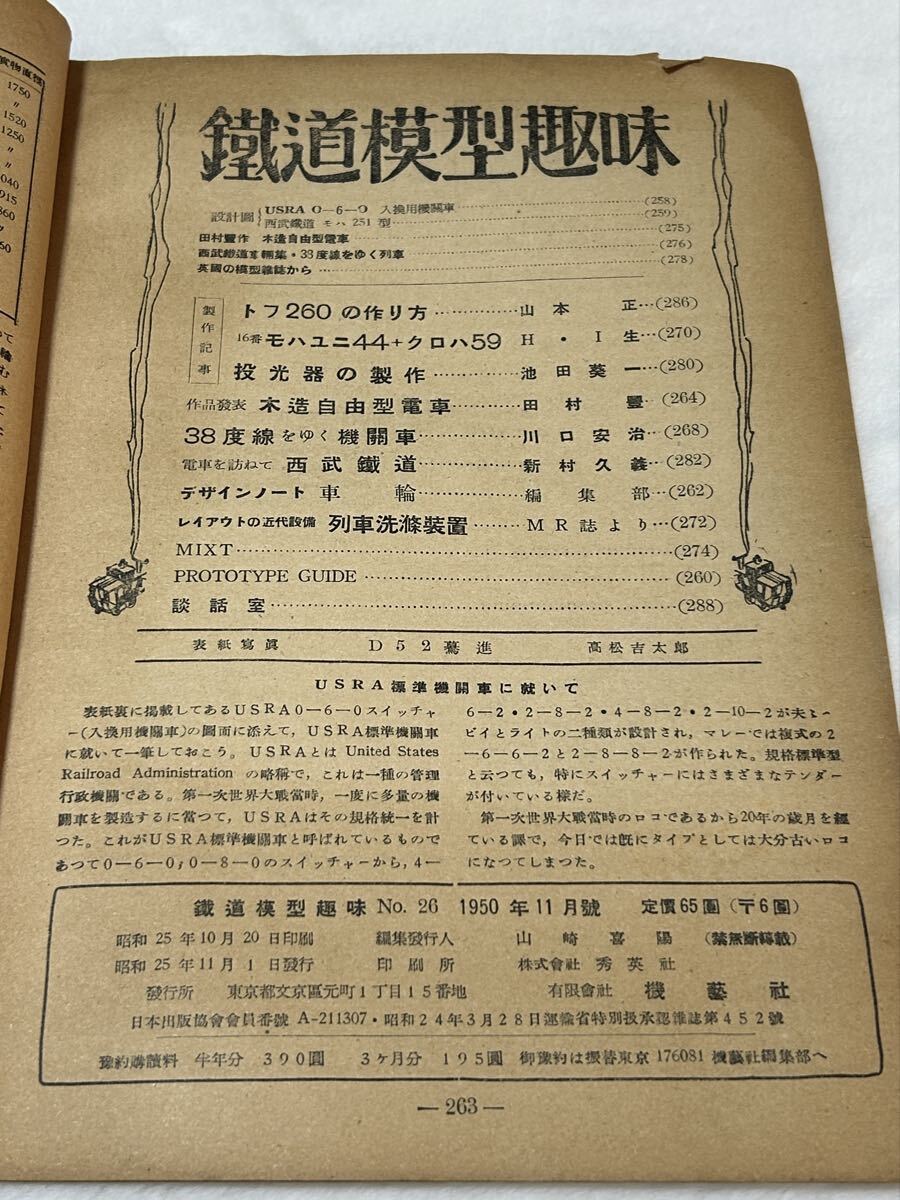 實物直徑
1750
〃
1520
1250
〃
〃
040
915
860
〃
鐵道模型趣味
設計圖 USRA 0―6―0 入換用機關車 (258)
西武鐵道 モハ 251 型 (259)
田村豐作 木造自由型電車 (275)
西武鐵道車輛集・38度線をゆく列車 (276)
英國の模型雜誌から (278)
製作記事
トフ260の作り方…………山本正…(286)
16番モハユニ44+クロハ59 H・I生…(270)
投光器の製作…………池田葵一…(280)
作品發表 木造自由型電車…………田村豐…(264)
38度線をゆく機關車…………川口安治…(268)
電車を訪ねて 西武鐵道…………新村久義…(282)
デザインノート 車輪…………編集部…(262)
レイアウトの近代設備 列車洗滌裝置………MR誌より…(272)
MIXT…………(274)
PROTOTYPE GUIDE…………(260)
談話室…………(288)
表紙寫眞 D52驀進 高松吉太郎
USRA標準機關車に就いて
表紙裏に掲載してあるUSRA0―6―0スイッチャ
ー(入換用機關車)の圖面に添えて，USRA標準機關車
に就いて一筆しておこう。USRAとは United States
Railroad Administration の略稱で，これは一種の管理
行政機關である。第一次世界大戰當時，一度に多量の機
關車を製造するに當つて，USRAはその規格統一を計
つた。これがUSRA標準機關車と呼ばれているもので
あつて0―6―0，0―8―0のスイッチャーから，4―
6―2・2―8―2・4―8―2・2―10―2が夫々ヘ
ビイとライトの二種類が設計され，マレーでは複式の2
―6―6―2と2―8―8―2が作られた。規格標準型
と云つても，特にスイッチャーにはさまざまなテンダー
が付いている樣だ。
第一次世界大戰當時のロコであるから20年の歲月を經
ている譯で，今日では旣にタイプとしては大分古いロコ
になつてしまつた。
鐵道模型趣味 No. 26 1950年11月號 定價65圓(〒6圓)
昭和25年10月20日印刷 編集發行人 山崎喜陽 (禁無斷轉載)
昭和25年11月1日發行 印刷所 株式會社 秀英社
發行所 東京都文京區元町1丁目15番地 有限會社 機藝社
日本出版協會會員番號 A-211307・昭和24年3月28日運輸省特別扱承認雜誌第452號
豫約購讀料 半年分 390圓 3ヶ月分 195圓 御豫約は振替東京 176081 機藝社編集部へ
― 263 ―